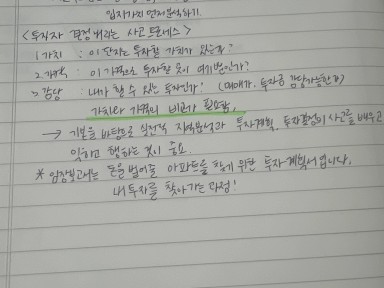 입지가치 먼저분석하기.
<투자자 결정 내리는 사고 프로세스>
1. 가치 : 이 단지는 투자할 가치가 있는가?
2. 가격 : 이 가격으로 투자할 곳이 여기뿐인가?
3. 감당 : 내가 할 수 있는 투자인가? (매매가, 투자금 감당가능한가)
가치와 가격의 비교가 필요함.
→ 기본을 바탕으로 실전적 지역분석과 투자계획, 투자결정의 사고를 배우고
익히고 행하는 것이 중요.
* 임장보고서는 돈을 벌어줄 아파트를 찾기 위한 투자 계획서 입니다.
내 투자를 찾아가는 과정!